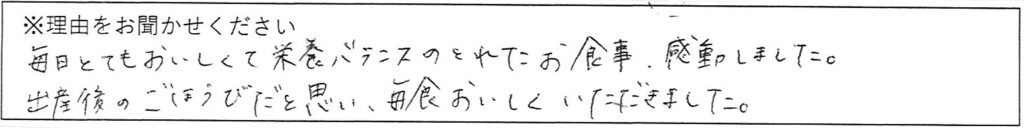 ※理由をお聞かせください
毎日とてもおいしくて栄養バランスのとれたお食事、感動しました。
出産後のごほうびだと思い、毎食おいしくいただきました。